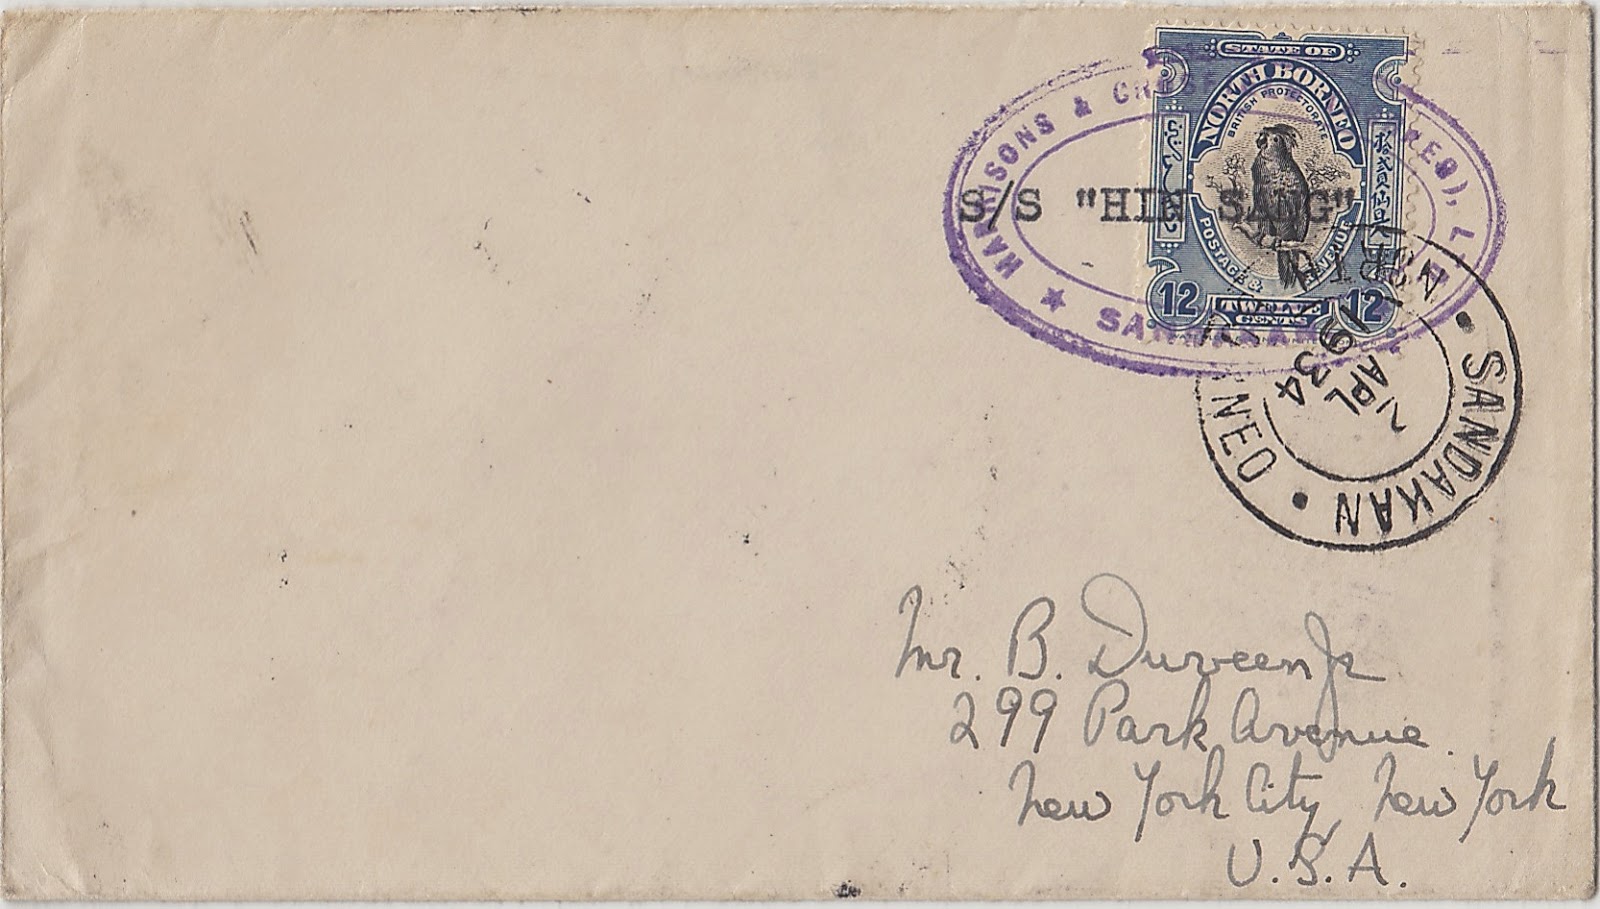 STATE OF
NORTH BORNEO
BRITISH PROTECTORATE
拾貳貟仙
POSTAGE & REVENUE
12 TWELVE CENTS 12
HARRISONS & 
SANDAKAN
S/S "HIN SANG"
SANDAKAN
APL
1934
Mr. B. Duveen Jr
299 Park Avenue.
New York City, New York
U.S.A.